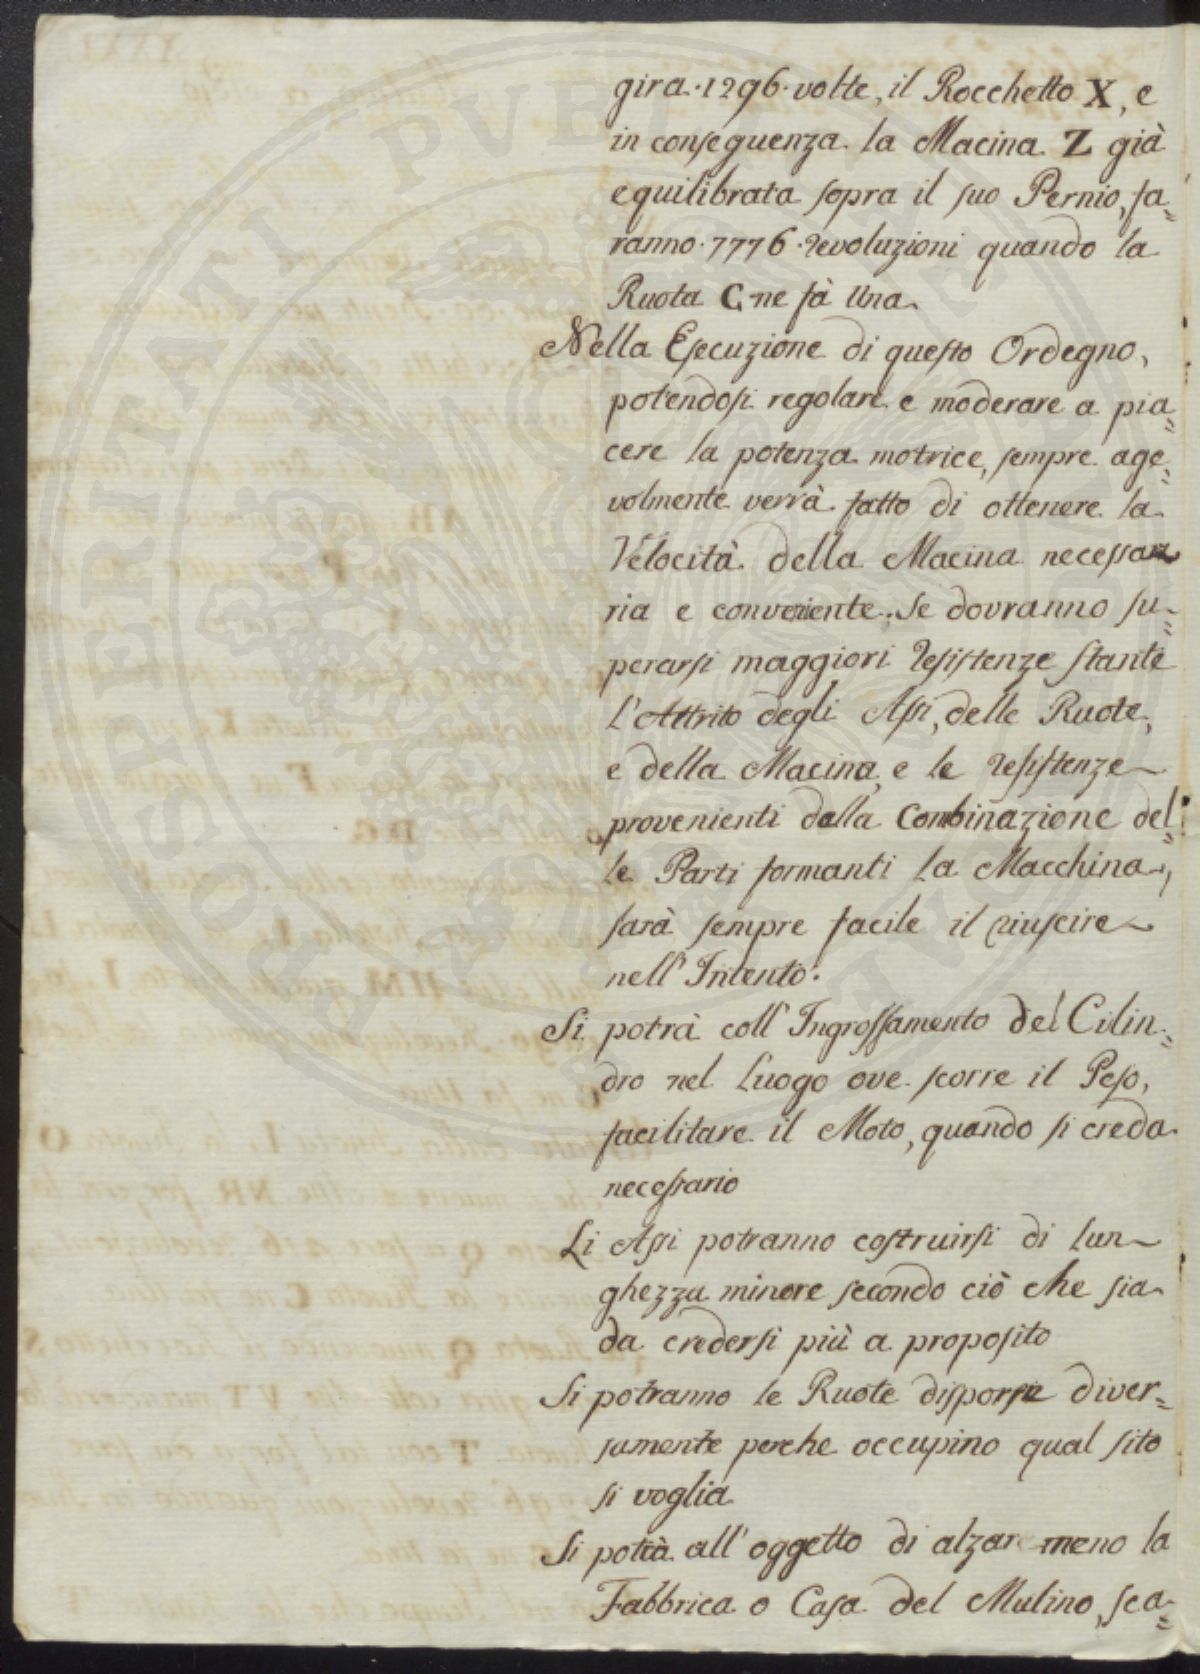 gira.1296.volte, il Rocchetto X, e
in conseguenza la Macina Z già
equilibrata sopra il suo Pernio, fa=
ranno.7776.revoluzioni quando la
Ruota C ne fà Una.
Nella Esecuzione di questo Ordegno,
potendosi regolare e moderare a pia=
cere la potenza motrice, sempre age=
volmente verrà fatto di ottenere la
Velocità della Macina necessa
ria e conveniente. Se dovranno su=
perarsi maggiori resistenze stante
l'Attrito degli Assi, delle Ruote,
e della Macina, e le resistenze
provenienti dalla Combinazione del=
le Parti formanti la Macchina,
sarà sempre facile il riuscire
nell'Intento.
Si potrà coll'Ingrossamento del Cilin=
dro nel Luogo ove scorre il Peso,
facilitare il Moto, quando si creda
necessario
Li Assi potranno costruirsi di lun
ghezza minore secondo ciò che sia
da credersi più a proposito
Si potranno le Ruote disporsi diver=
samente perche occupino qual sito
si voglia
Si potrà all'oggetto di alzare meno la
Fabbrica o Casa del Mulino, sca=
PROSPERITATI PVBLICAE AVGENDAE